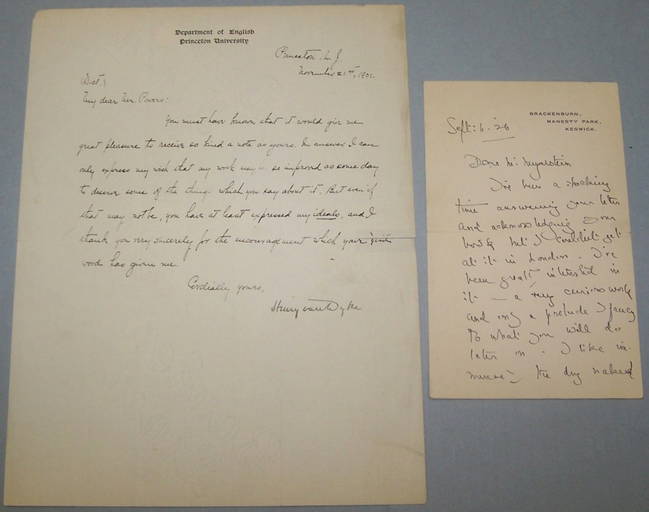 Department of English
Princeton University
Princeton, N.J.
November 21st, 1901.
Dict.)
My dear Mr.
You must have known that it would give me
great pleasure to receive so kind a note as yours. In answer I can
only express my wish that my work may be so improved as some day
to deserve some of the things which you say about it. But even if
that may not be, you have at least expressed my ideals, and I
thank you very sincerely for the encouragement which your
word has given me.
Cordially yours,
Henry van Dyke
BRACKENBURN,
MANESTY PARK,
KESWICK.
Sept: 6. '26
Dear Mr
I've been a shocking
time answering your letter
and acknowledging your
book but I couldn't get
at it in London. I've
been greatly interested in
it — a very curious work
and only a prelude I fancy
to what you will do
later on. I like
the dry naked